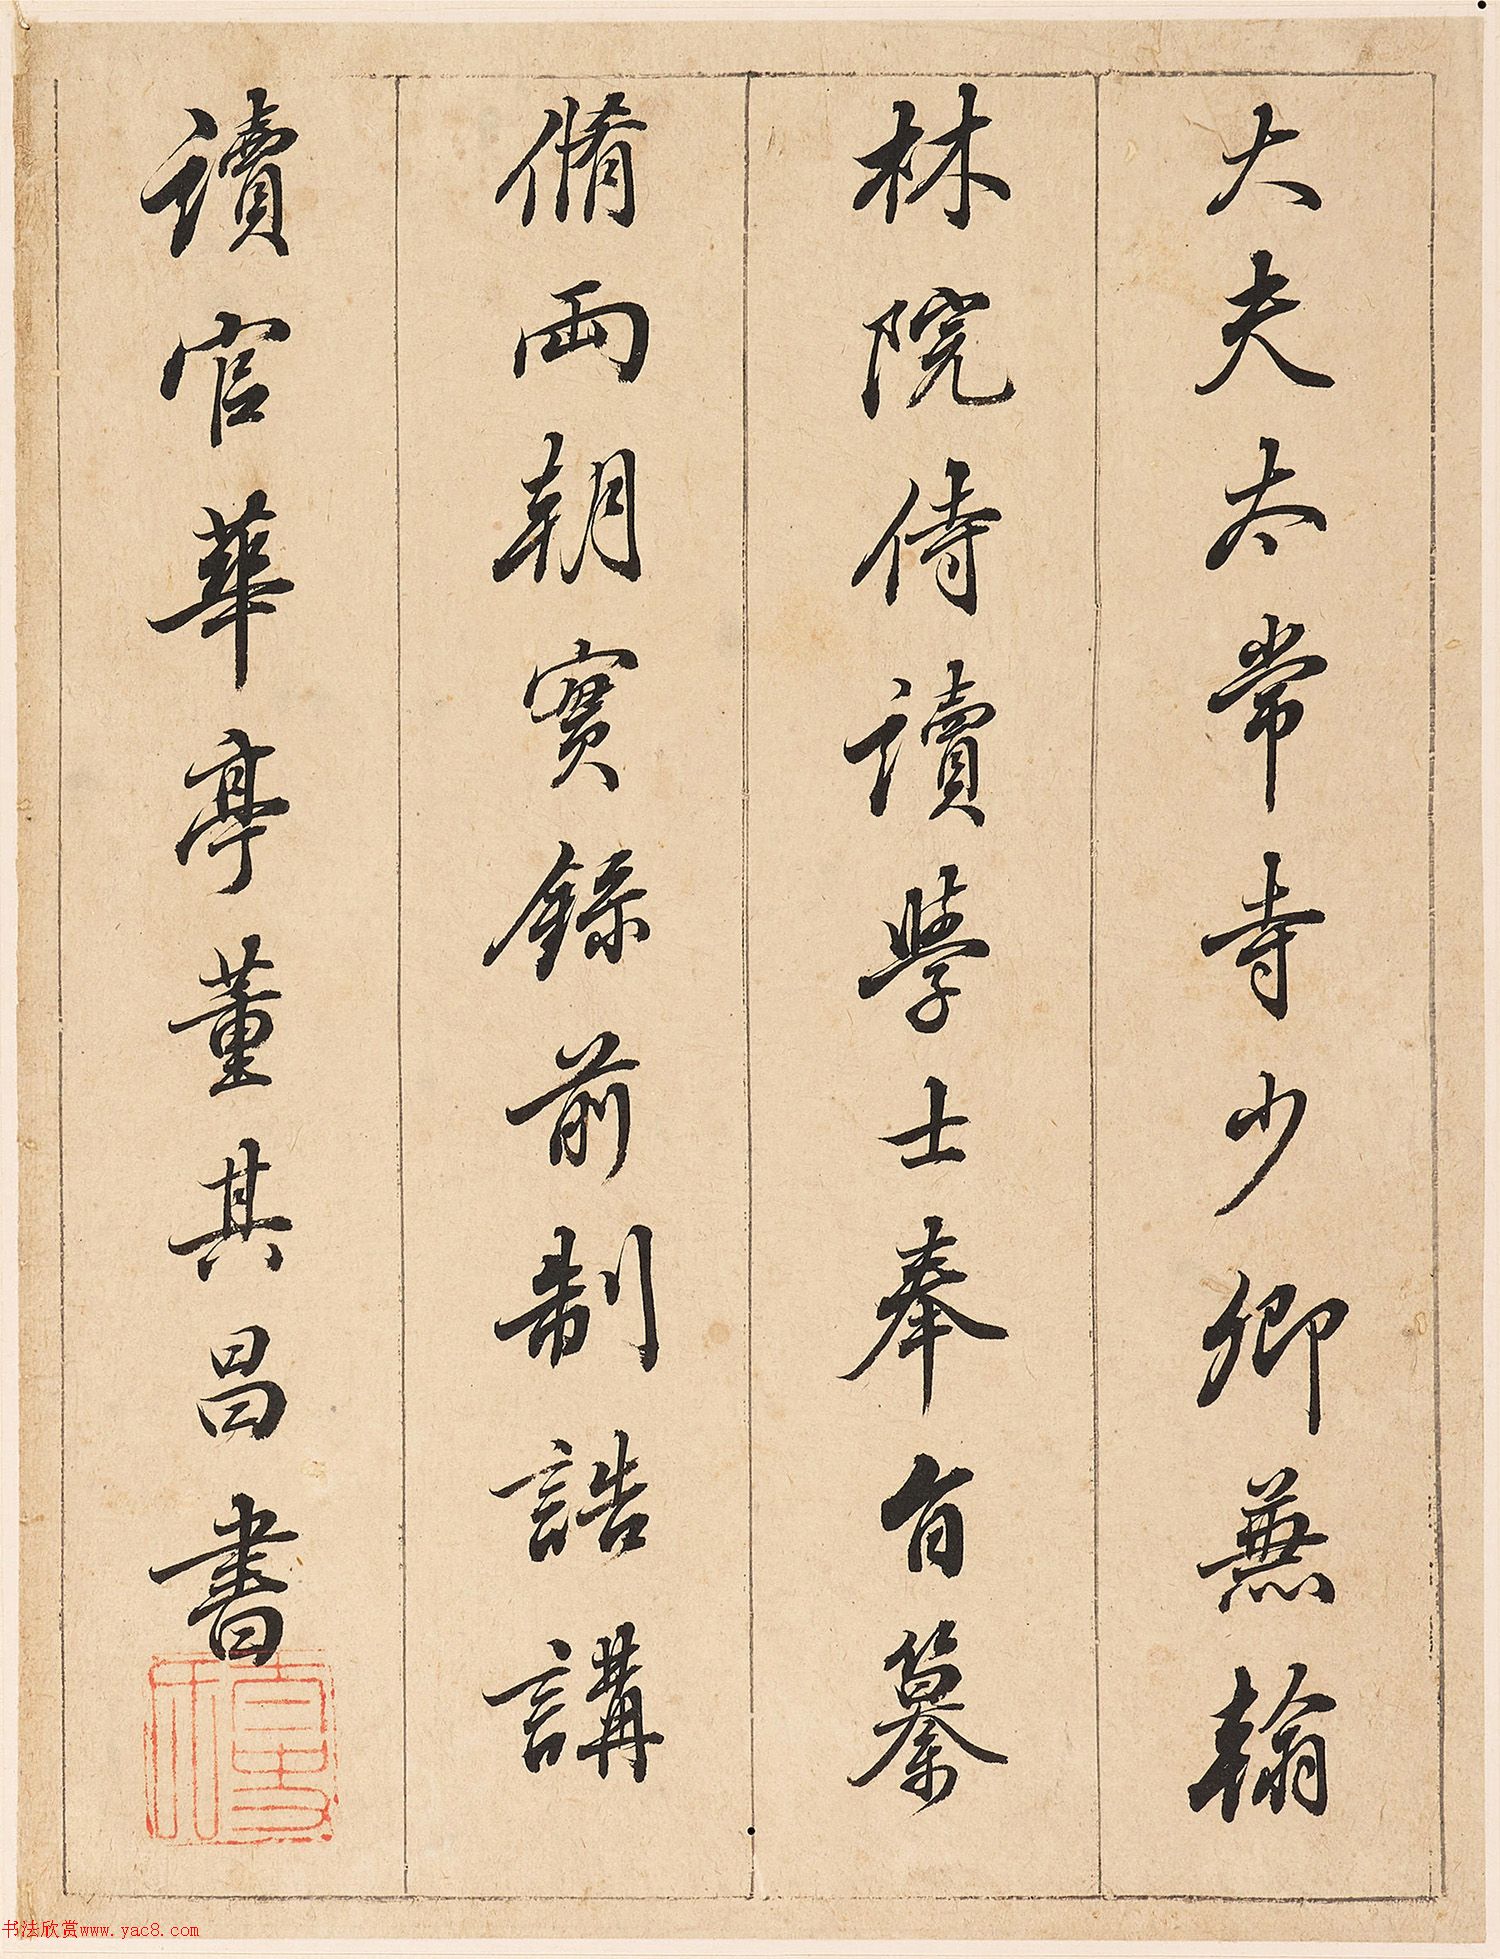 大夫太常寺少卿兼翰
林院侍讀學士奉旨纂
脩兩朝實錄前制誥講
讀官華亭董其昌書
书法欣赏www.yac8.com